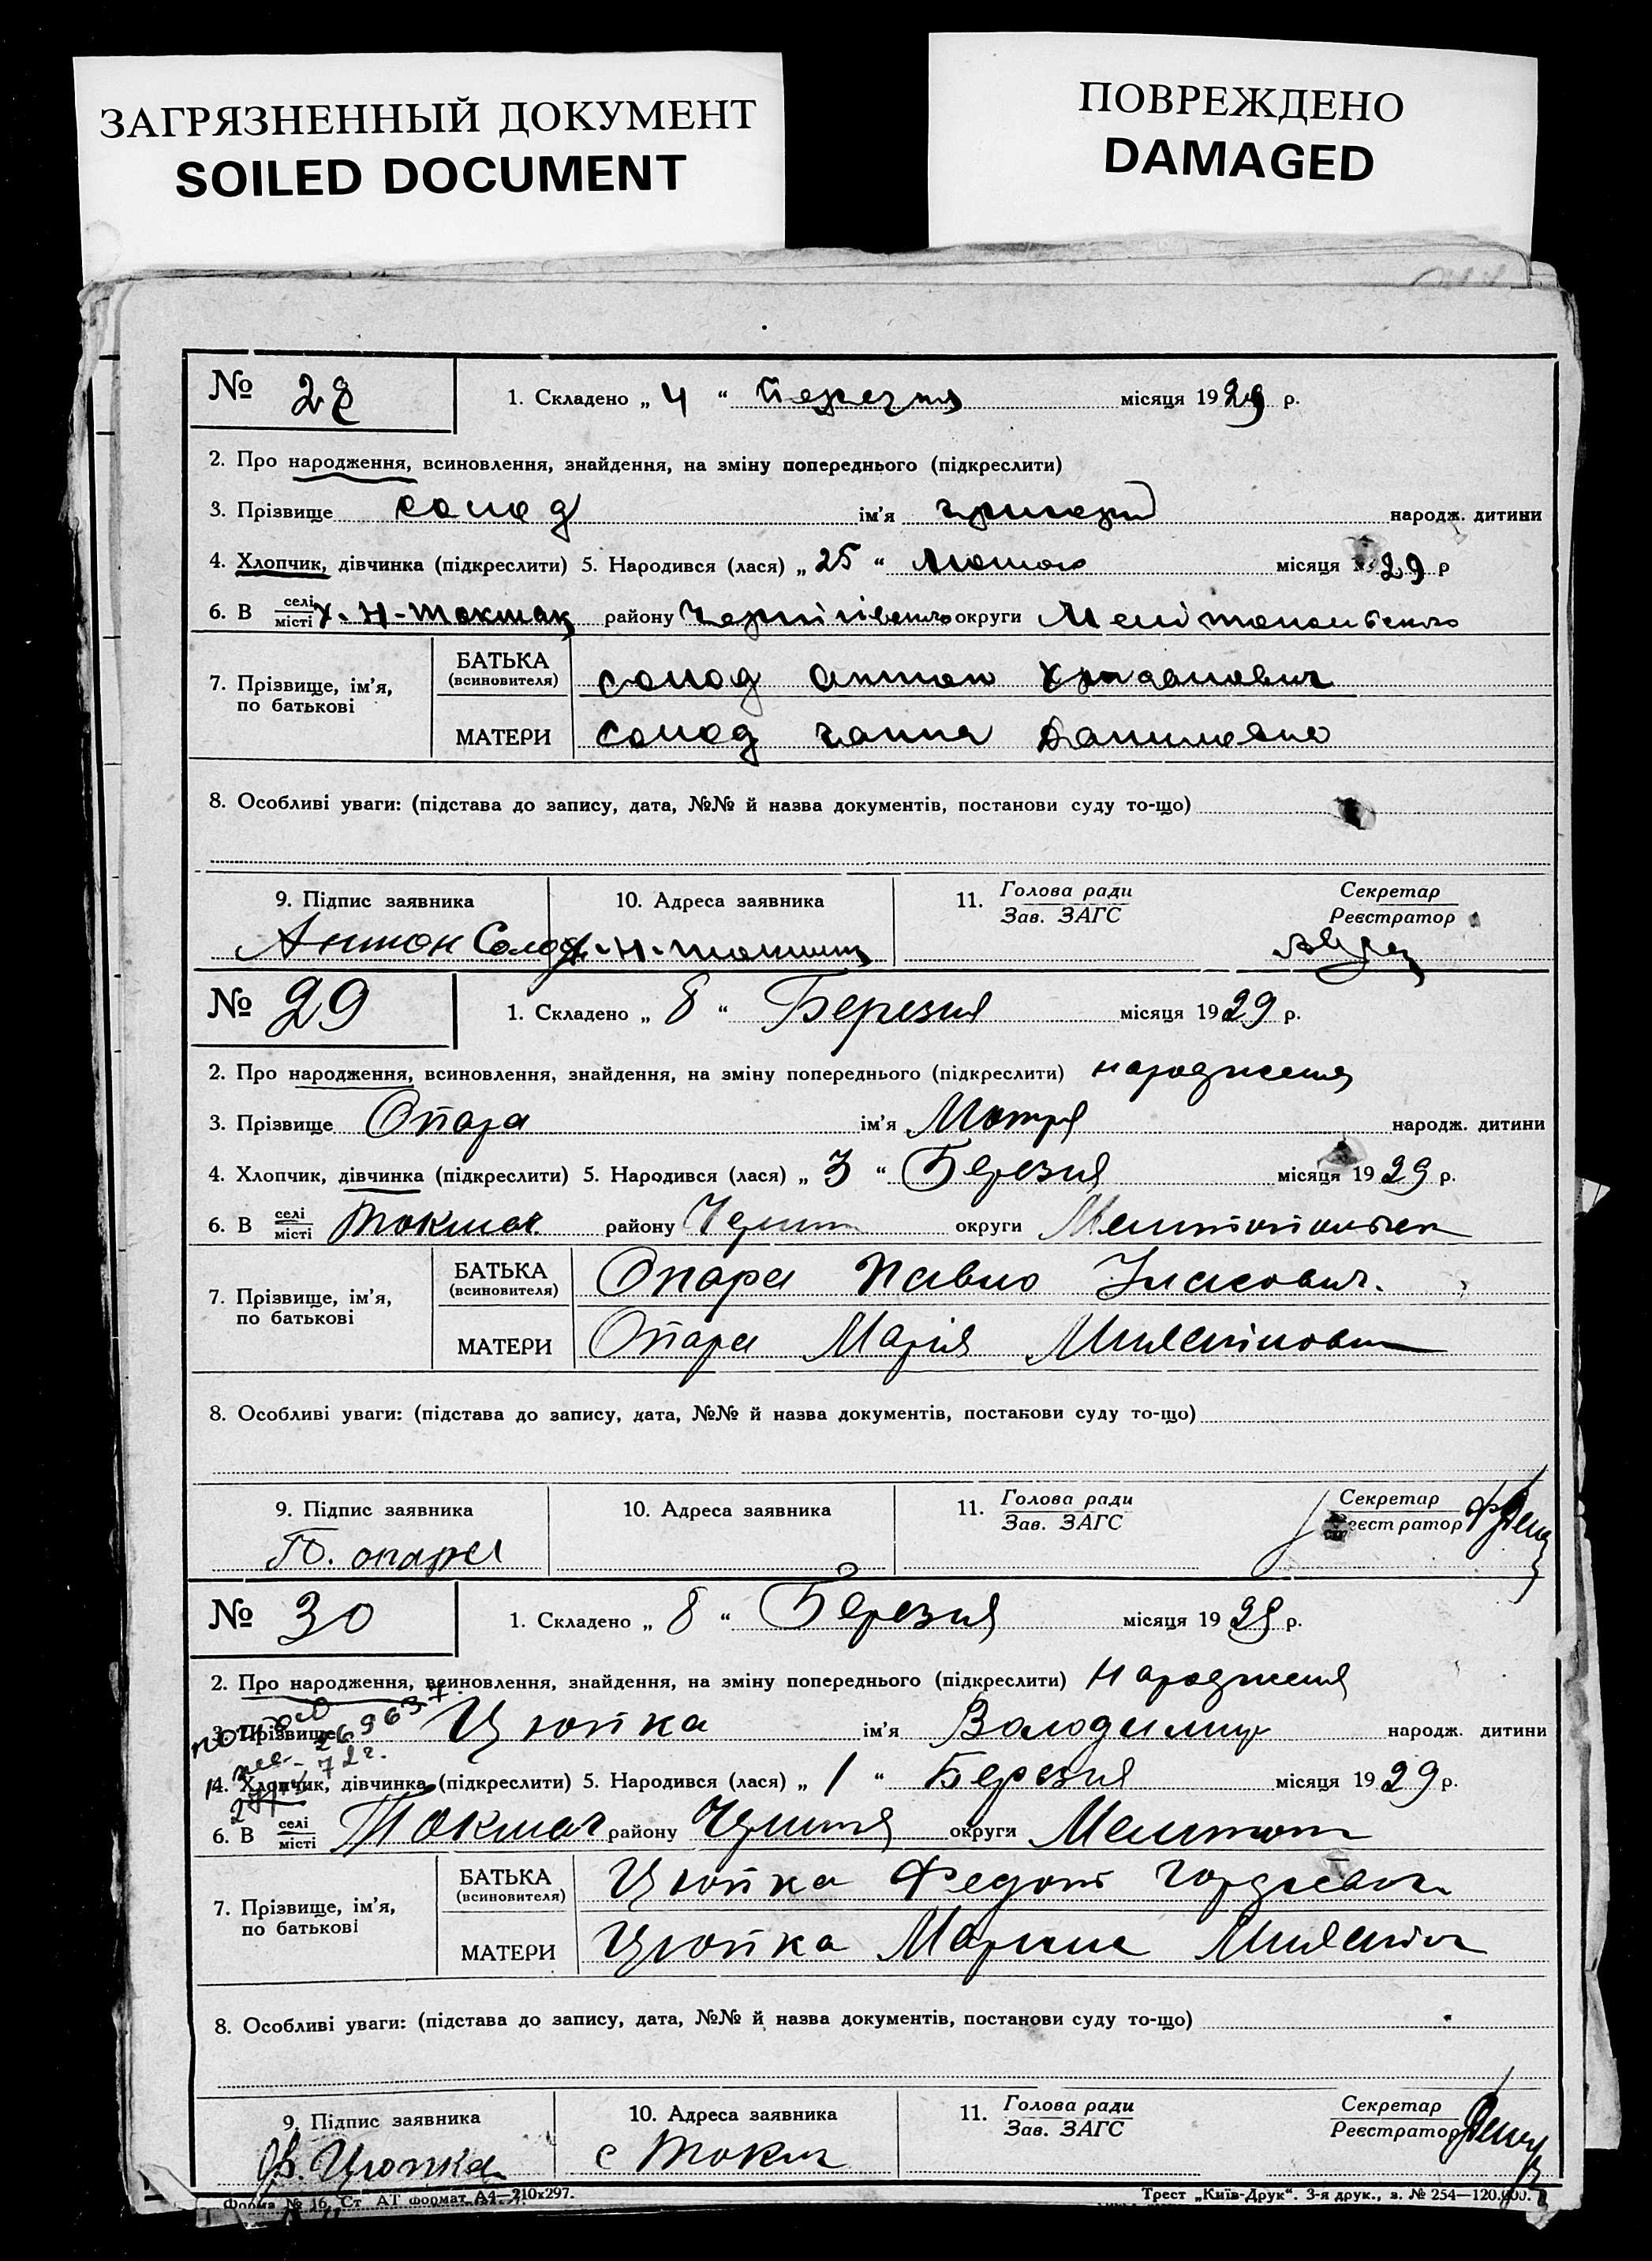 ЗАГРЯЗНЕННЫЙ ДОКУМЕНТ
SOILED DOCUMENT
ПОВРЕЖДЕНО
DAMAGED
№ 28
1. Складено „ 4 “ березня місяця 1929 р.
2. Про народження, всиновлення, знайдення, на зміну попереднього (підкреслити)
3. Прізвище солод ім’я григорій народж. дитини
4. Хлопчик, дівчинка (підкреслити) 5. Народився (лася) „ 25 “ лютого місяця 1929 р
6. В селі/місті х. Н-Токмак району Чернігівського округи Мелітопольського
7. Прізвище, ім’я, по батькові
БАТЬКА (всиновителя) солод антон
МАТЕРИ солод ганна Даниловна
8. Особливі уваги: (підстава до запису, дата, №№ й назва документів, постанови суду то-що)
9. Підпис заявника
10. Адреса заявника
11. Голова ради
Зав. ЗАГС
Секретар
Реєстратор
Антон Солод х.-Н-Токмак
№ 29
1. Складено „ 8 “ Березня місяця 1929 р.
2. Про народження, всиновлення, знайдення, на зміну попереднього (підкреслити) народження
3. Прізвище Опара ім’я Мотря народж. дитини
4. Хлопчик, дівчинка (підкреслити) 5. Народився (лася) „ 3 “ Березня місяця 1929 р.
6. В селі/місті Токмак району округи
7. Прізвище, ім’я, по батькові
БАТЬКА (всиновителя) Опара Павло Власович
МАТЕРИ Опара Марія
8. Особливі уваги: (підстава до запису, дата, №№ й назва документів, постанови суду то-що)
9. Підпис заявника
10. Адреса заявника
11. Голова ради
Зав. ЗАГС
Секретар
Реєстратор
П. опара
№ 30
1. Складено „ 8 “ Березня місяця 1929 р.
2. Про народження, всиновлення, знайдення, на зміну попереднього (підкреслити) Народження
3. Прізвище Цюпка ім’я Володимир народж. дитини
4. Хлопчик, дівчинка (підкреслити) 5. Народився (лася) „ 1 “ Березня місяця 1929 р.
6. В селі/місті Токмак району округи
7. Прізвище, ім’я, по батькові
БАТЬКА (всиновителя) Цюпка Федот Гордієвич
МАТЕРИ Цюпка Марина
8. Особливі уваги: (підстава до запису, дата, №№ й назва документів, постанови суду то-що)
9. Підпис заявника
10. Адреса заявника
11. Голова ради
Зав. ЗАГС
Секретар
Реєстратор
Ф. Цюпка с Токмак
Форма № 16. Ст. АТ формат А4—210х297.
Трест „Київ-Друк“. 3-я друк., з. № 254—120.000.